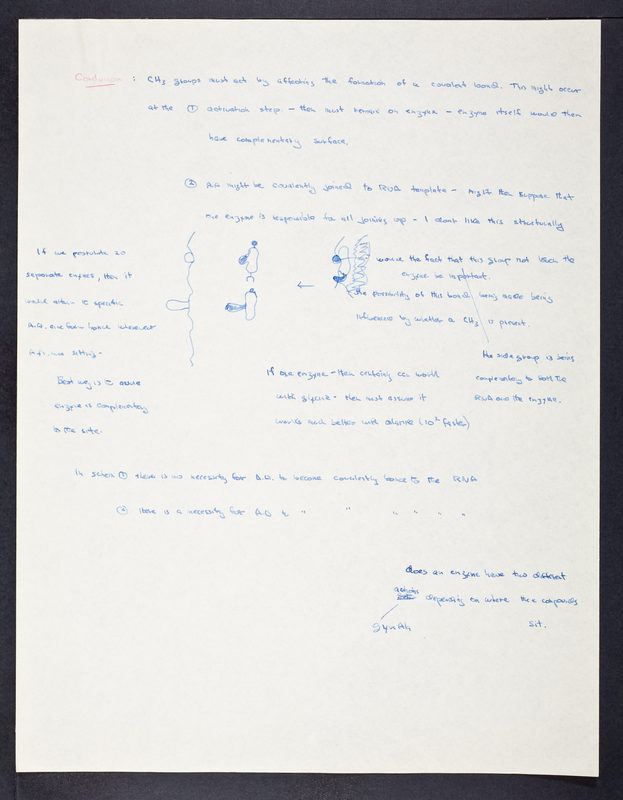 Conclusion : CH3 groups must act by affecting the formation of a covalent bond. This might occur
at the ① activation step - then must remain on enzyme - enzyme itself would then
have complementary surface.
② AA might be covalently joined to RNA template - might then suppose that
one enzyme is responsible for all joining up - I don't like this structurally
If we postulate 20
separate enzymes, then it
could attain its specific
A.A. one bond wherever
A.A. was sitting -
Best way is to assume
enzyme is complementary
to the site.
would the fact that this group not leave the
enzyme be important.
the possibility of this bond being made being
influenced by whether a CH3 is present.
the side group is being
complementary to both the
RNA and the enzyme.
If one enzyme - then certainly can work
with glycine - then must assume it
works much better with alanine (10² faster)
In scheme ① there is no necessity for A.A. to become covalently bound to the RNA
② there is a necessity for A.A. " " " " " "
does an enzyme have two different
actions depending on where the compounds
sit.